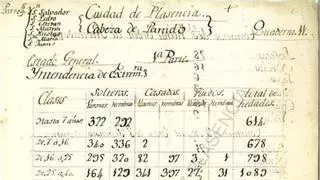 Parroq.
S. Salvador
S. Pedro
S. Esteban
S. Martin
S. Nicolas
S. Maria
S. Juan
Ciudad de Plasencia.
Cabeza de Partido
Quaderno
Estado General. 1ª Parte.
Yntendencia de Extrem.ra
Clases Solteros Casados Viudos Total de hedades.
Varones. Hembras Varones. Hembras Varones. Hembras
Hasta 7 años. 322 292 614
De 7. à 16. 340 336 2 678
De 16. à 25. 295 320 82 97 3 1 798
De 25. à 40. 164 129 341 397 27 31 1089